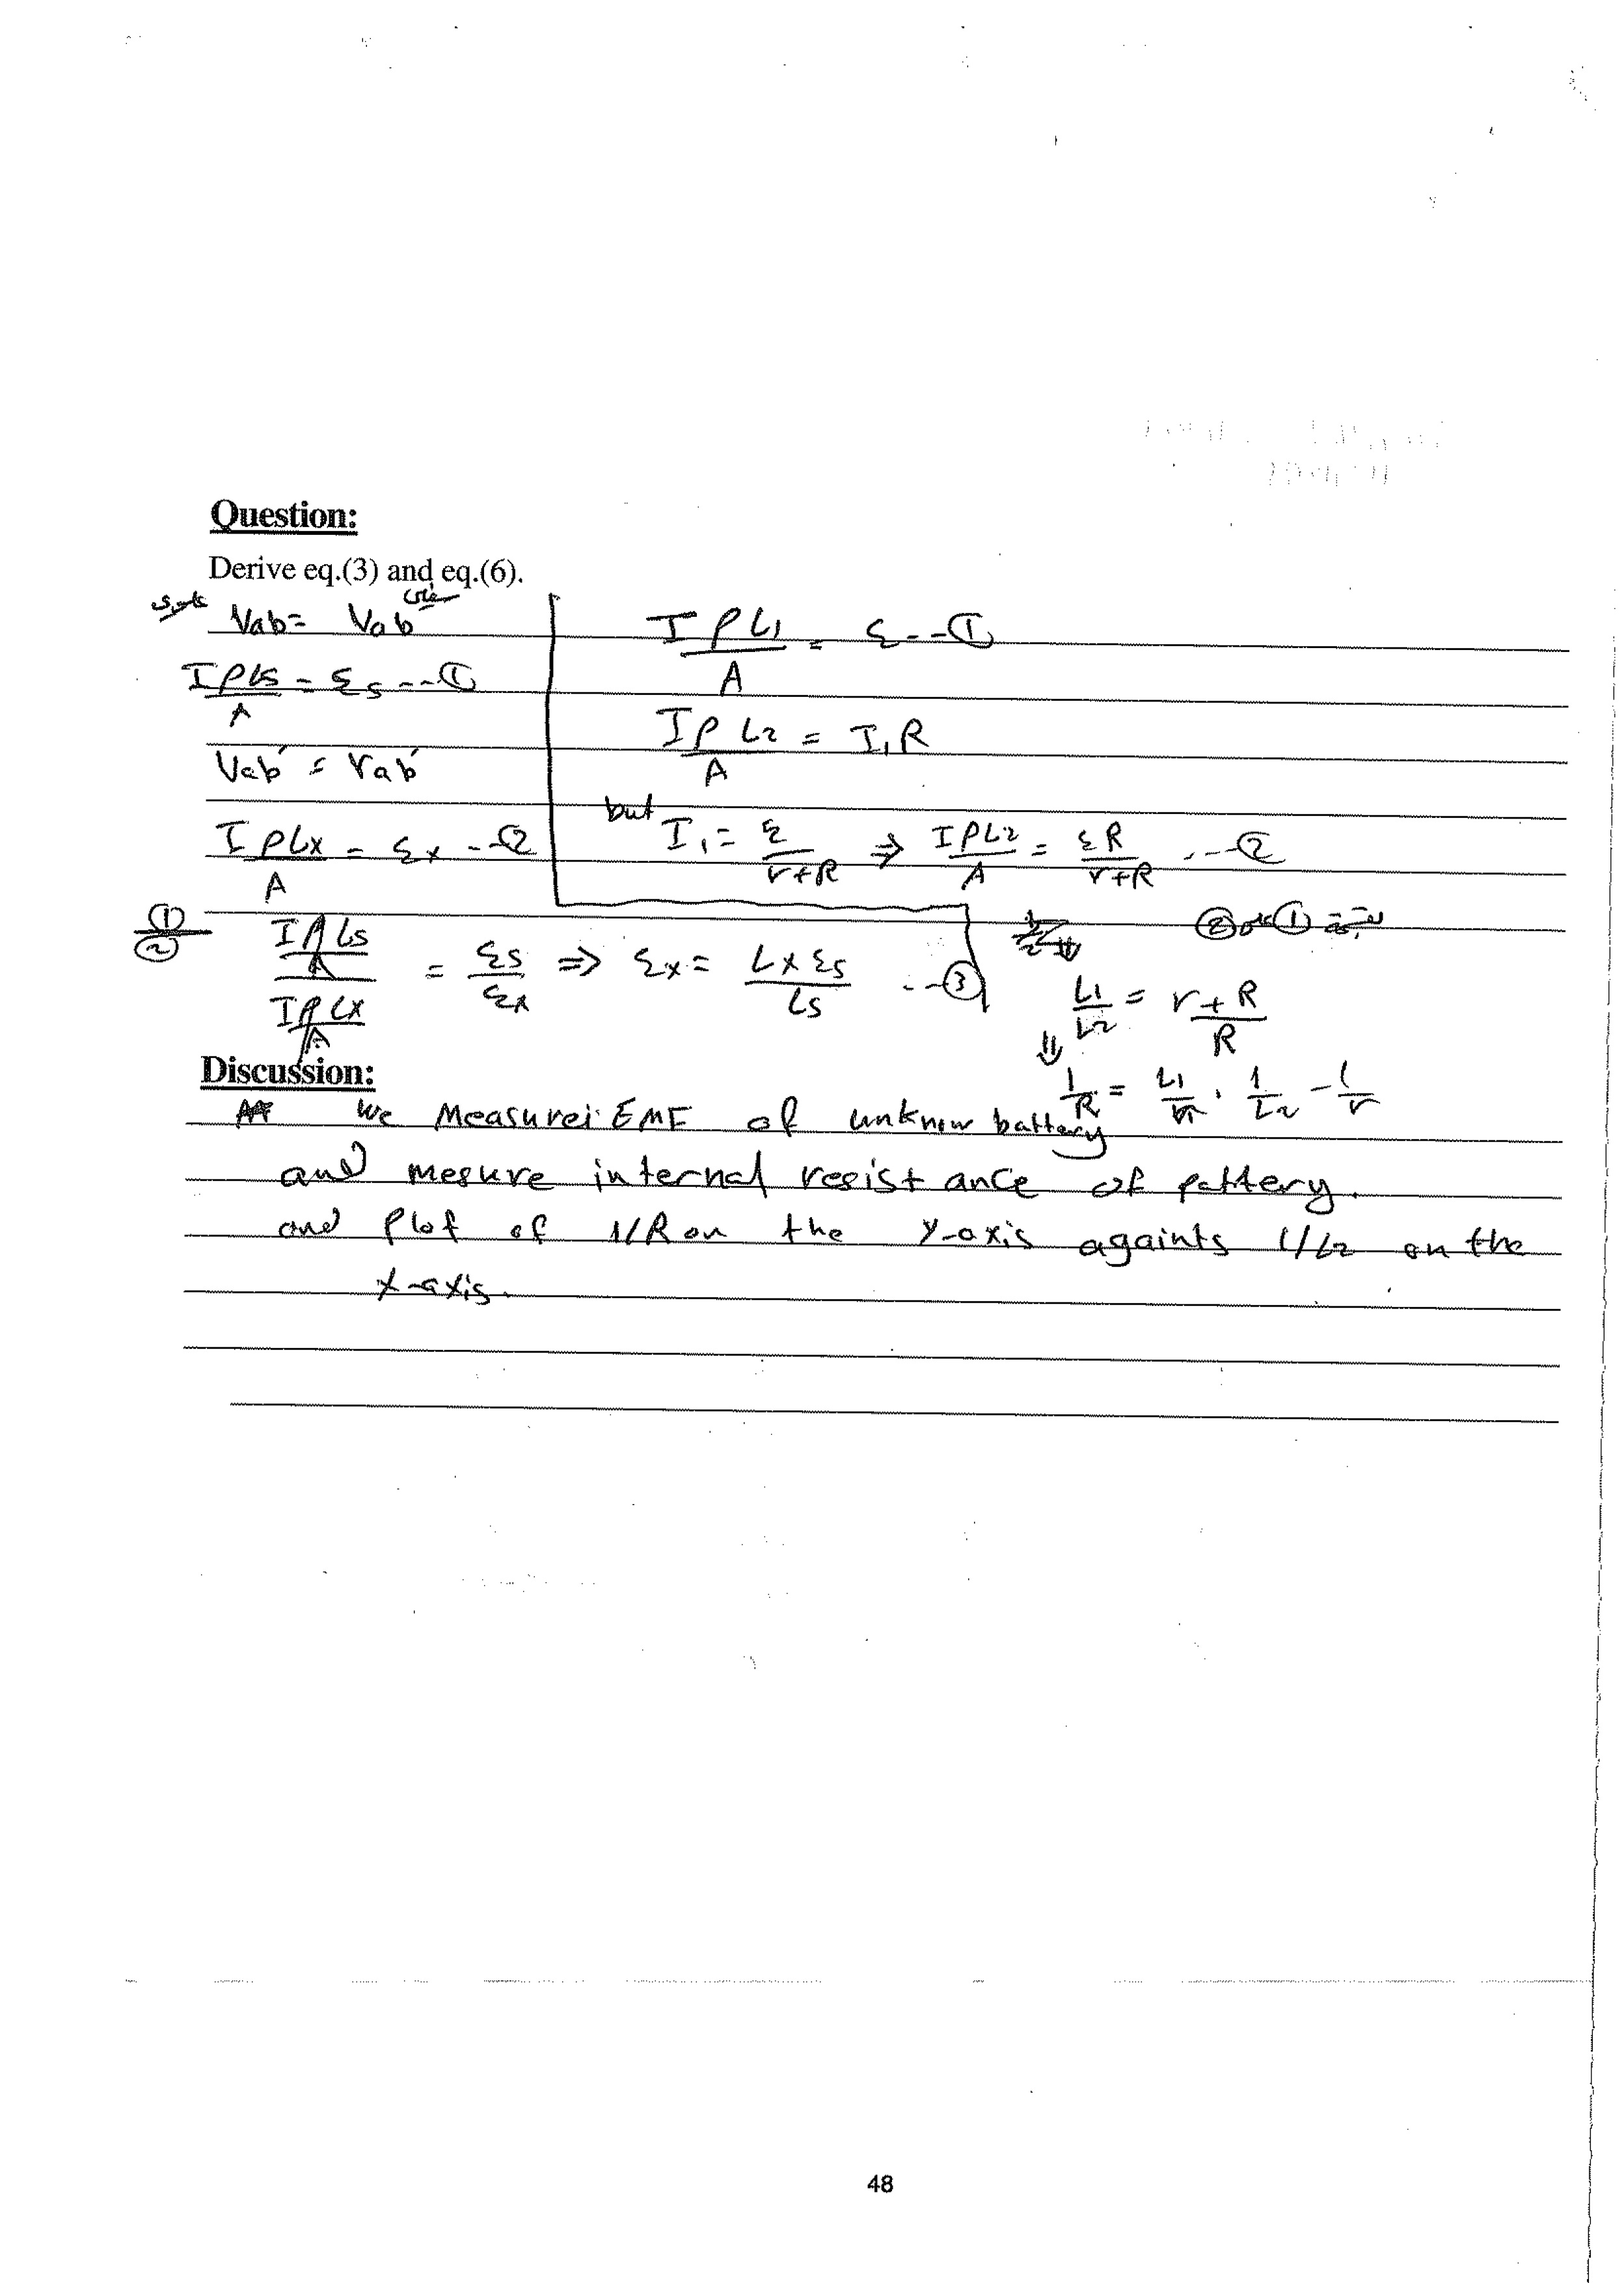 Question:
Derive eq.(3) and eq.(6).
Vab = Vab
IρLs/A = εs --- ①
Vab' = Vab'
IρLx/A = εx --- ②
①/② (IρLs/A)/(IρLx/A) = εs/εx ⇒ εx = Lx εs/Ls --- ③
IρL1/A = ε --- ①
IρL2/A = I1R
but I1 = ε/(r+R) ⇒ IρL2/A = εR/(r+R) --- ②
② ①
L1/L2 = (r+R)/R
⇓
1/R = L1/r . 1/L2 - 1/r
Discussion:
We Measure EMF of unknow battery
and mesure internal resistance of pattery.
and Plot of 1/R on the y-axis againts 1/L2 on the
x-axis.
48